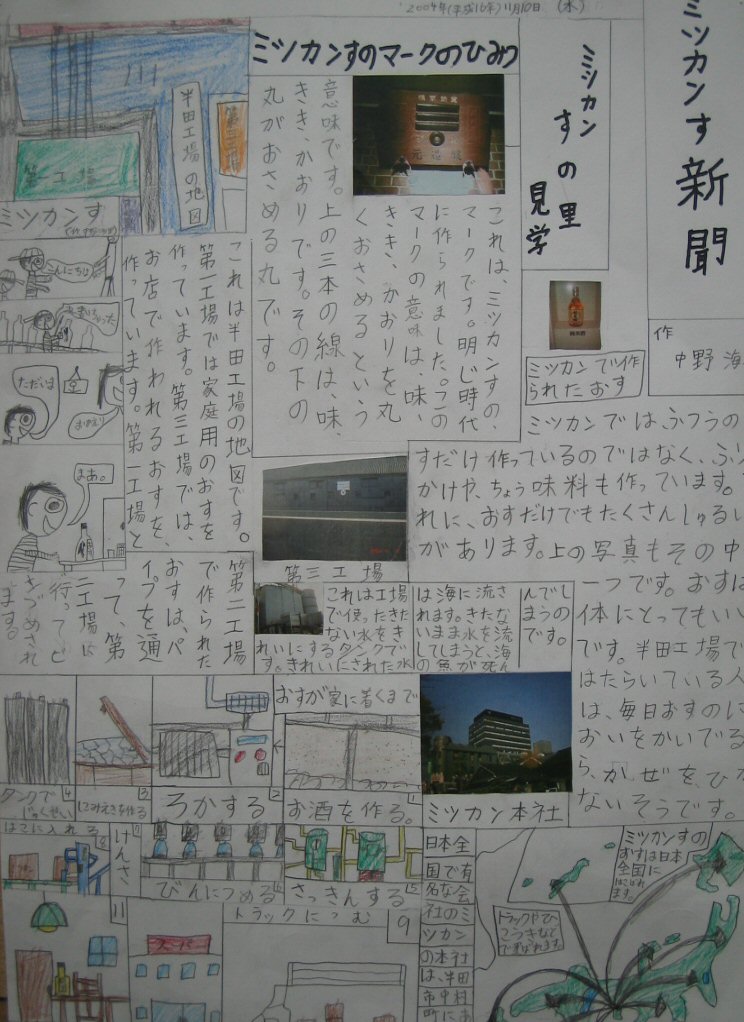 2004年(平成16年)11月10日(水)
ミツカンす新聞
作
中野 海
ミツカン
すの里
見学
ミツカンで作
られたおす
ミツカンではふつうの
すだけ作っているのではなく、ふり
かけや、ちょう味料も作っています。
れに、おすだけでもたくさんしゅるい
があります。上の写真もその中
一つです。おすは
体にとってもいい
です。半田工場で
はたらいている人
は、毎日おすのに
おいをかいでる
ら、かぜをひか
ないそうです。
ミツカンすのマークのひみつ
これは、ミツカンすの、
マークです。明じ時代
に作られました。この
マークの意味は、味、
きき、かおりを丸
くおさめるという
意味です。上の三本の線は、味、
きき、かおりです。その下の
丸がおさめる丸です。
半田工場の地図
第三工場
第二工場
これは半田工場の地図です。
第一工場では家庭用のおすを
作っています。第三工場では、
お店で作われるおすを、
作っています。第一工場と
第二工場
で作られた
おすは、パ
イプを通
って、第
二工場に
行ってビ
きづめされ
ます。
ミツカンす
こんにちは
ただいま
おかえり
まあ。
第三工場
これは工場
で使ったきた
ない水をき
れいにするタンクで
す。きれいにされた水
は海に流さ
れます。きたな
いまま水を流
してしまうと、海
の魚が死ん
んでし
まうの
です。
ミツカン本社
おすが家に着くまで
1
お酒を作る。
2
ろかする
3
にみえきを作る
4
タンクで
じゅくせい
5
さっきんする
6
びんにつめる
7
けんさ
8
はこに入れる
9
トラックにつむ
スーパー
11
日本全
国で有
名な会
社のミ
ツカン
の本社
は、半田
市中村
町にあ
ミツカンすの
おすは日本
全国に
はこばれ
ます。
トラックやひ
こうきなど
で運ばれます。